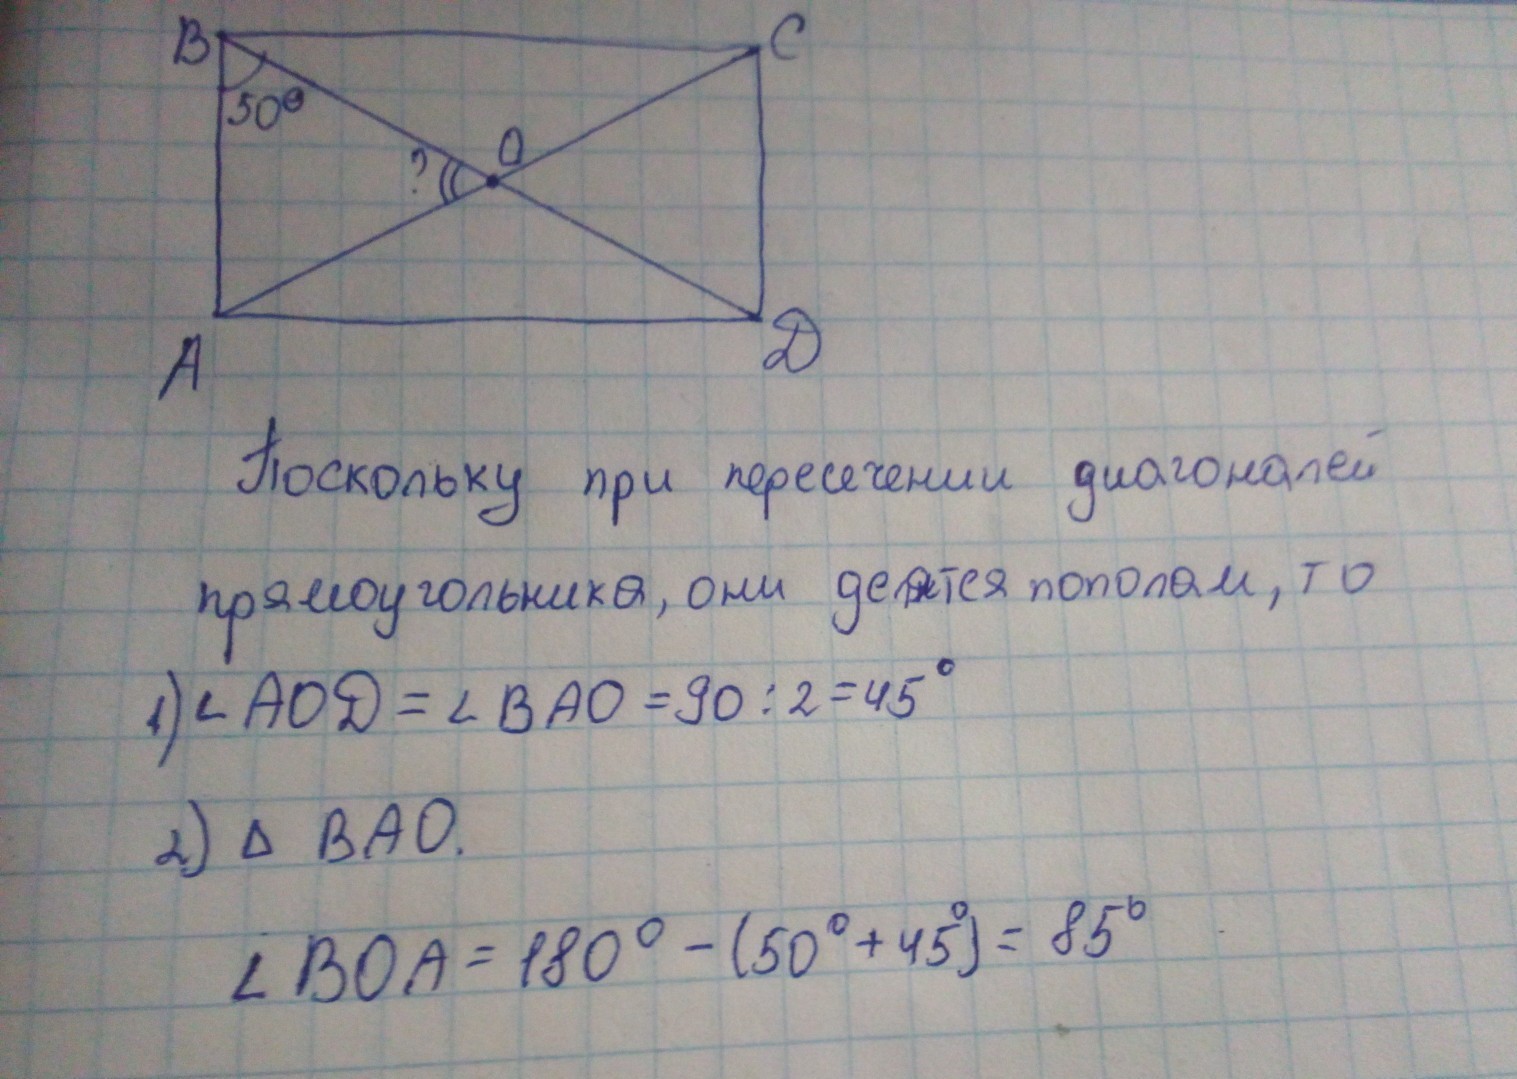 B
C
50°
?
O
A
D
Поскольку при пересечении диагоналей
прямоугольника, они делятся пополам, то
1) ∠ AOD = ∠ BAO = 90 : 2 = 45°
2) Δ BAO.
∠ BOA = 180° - (50° + 45°) = 85°